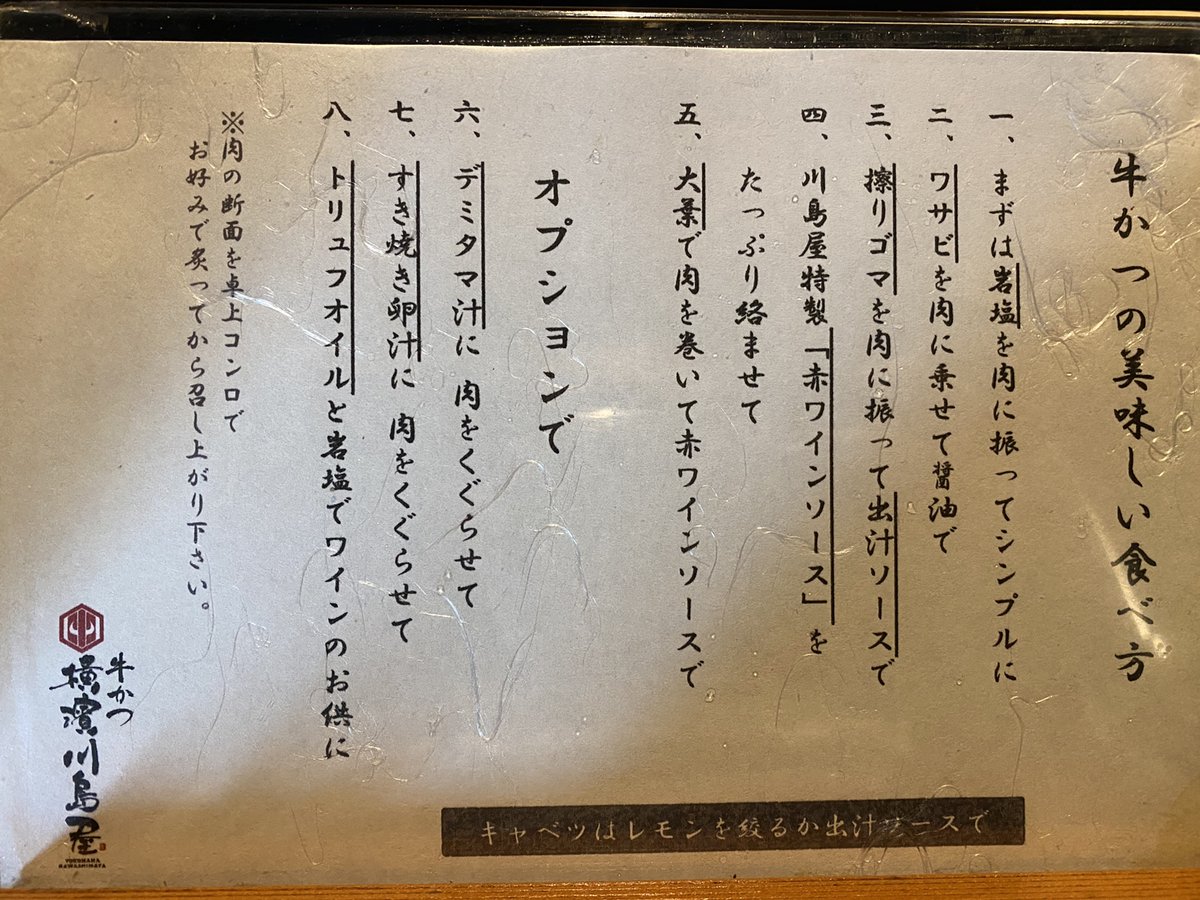 牛かつの美味しい食べ方
一、まずは岩塩を肉に振ってシンプルに
二、ワサビを肉に乗せて醤油で
三、擦りゴマを肉に振って出汁ソースで
四、川島屋特製「赤ワインソース」を
たっぷり絡ませて
五、大葉で肉を巻いて赤ワインソースで
オプションで
六、デミタマ汁に 肉をくぐらせて
七、すき焼き卵汁に 肉をくぐらせて
八、トリュフオイルと岩塩でワインのお供に
※肉の断面を卓上コンロで
お好みで炙ってから召し上がり下さい。
キャベツはレモンを絞るか出汁ソースで
牛かつ
横濱川島屋
YOKOHAMA
KAWASHIMAYA